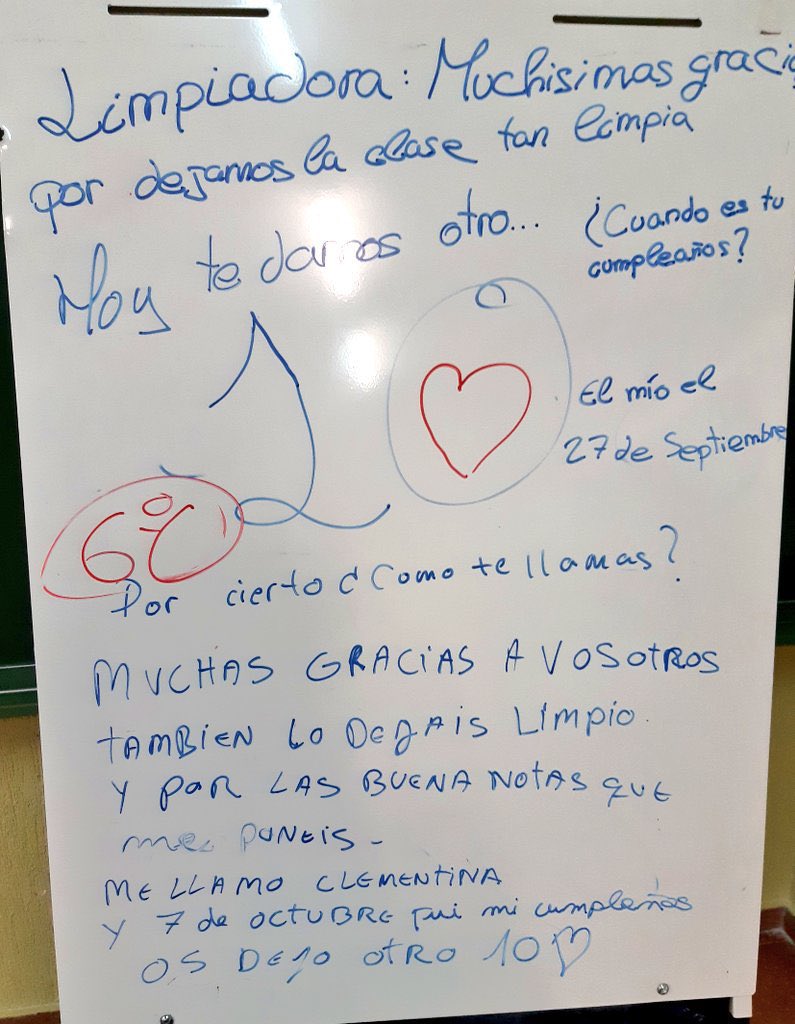 Limpiadora: Muchisimas gracia
por dejarnos la clase tan limpia
Hoy te damos otro...
¿Cuando es tu
cumpleaños?
10
El mío el
27 de Septiembre
6ºC
Por cierto ¿Como te llamas?
MUCHAS GRACIAS A VOSOTROS
TAMBIEN LO DEJAIS LIMPIO.
Y POR LAS BUENA NOTAS QUE
me PONEIS-
ME LLAMO CLEMENTINA
Y 7 de OCTUBRE fui mi cumpleños
OS DEJO OTRO 10